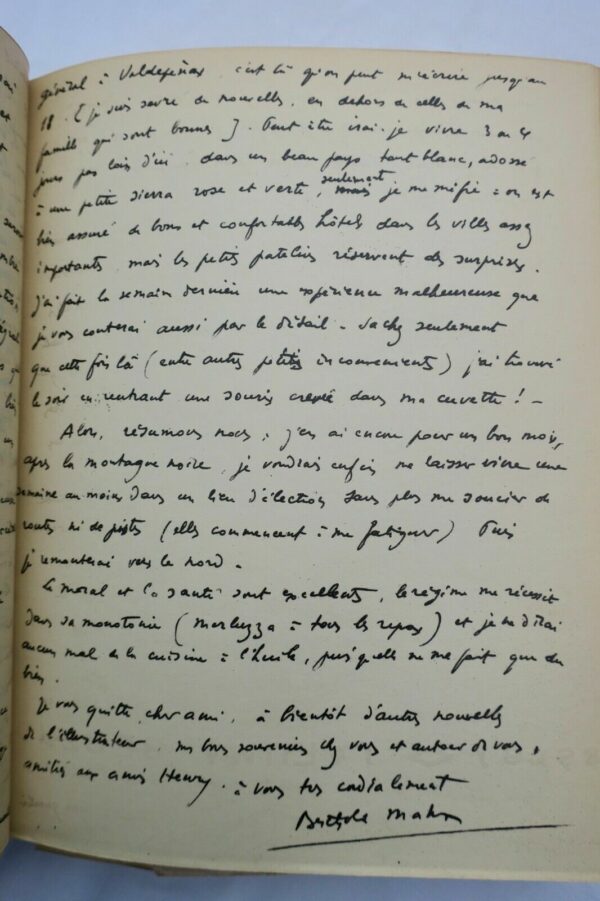 général à Valdepeñas, c'est là qu'on peut m'écrire jusqu'au
18. [je suis sevré de nouvelles, en dehors de celles de ma
famille qui sont bonnes]. Peut être irai-je vivre 3 ou 4
jours pas loin d'ici, dans un beau pays tout blanc, adossé
à une petite sierra rose et verte, seulement mais je me méfie : on est
bien assuré de bons et confortables hôtels dans les villes assez
importantes, mais les petits patelins réservent des surprises.
J'ai fait la semaine dernière une expérience malheureuse que
je vous conterai aussi par le détail - Sachez seulement
que cette fois là (entre autres petits inconvenients) j'ai trouvé
le soir en rentrant une souris crevée dans ma cuvette ! -
Alors, résumons nous : j'en ai encore pour un bon mois,
après la montagne noire, je voudrais enfin me laisser vivre une
semaine au moins dans un lieu d'élection sans plus me soucier de
routes ni de pistes (elles commencent à me fatiguer) Puis
je remonterai vers le nord.
Le moral et la santé sont excellents, le régime me réussit
dans sa monotonie (merluzza à tous les repas) et je ne dirai
aucun mal de la cuisine à l'huile, puisqu'elle ne me fait que du
bien.
Je vous quitte, cher ami, à bientôt d'autres nouvelles
de l'illustrateur, mes bons souvenirs chez vous et autour de vous,
amitiés aux amis Henry. à vous très cordialement
Berthold Mahn